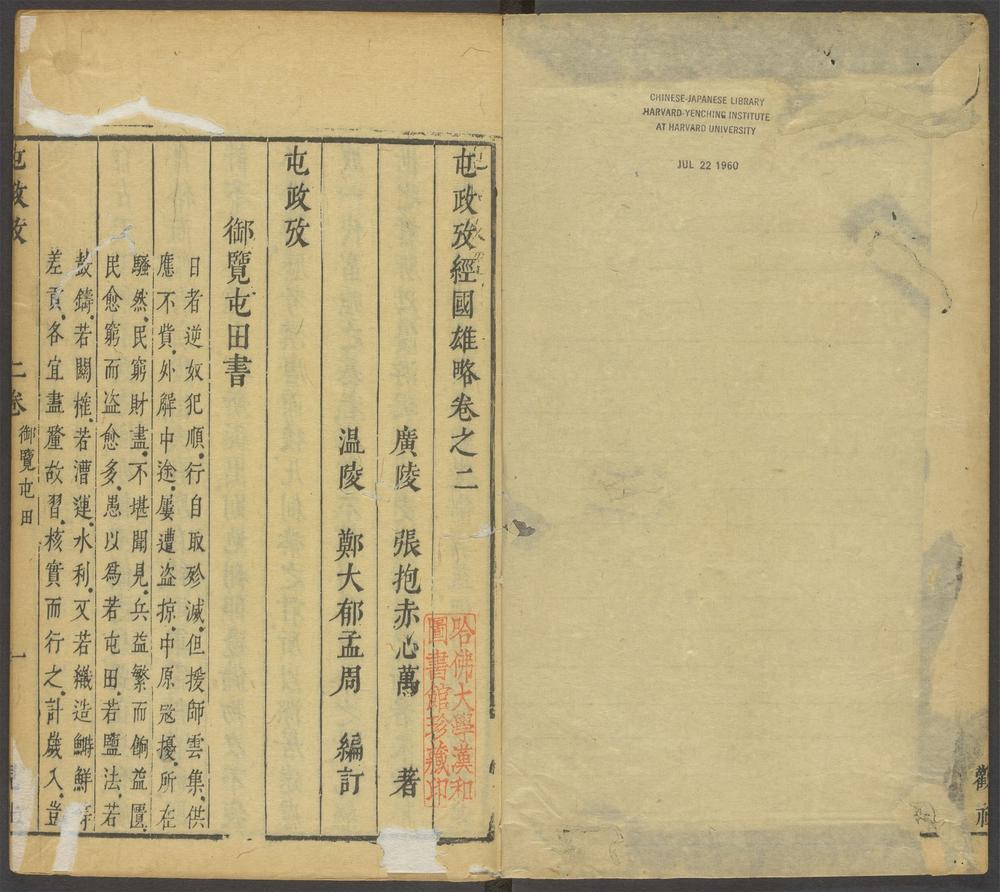 CHINESE-JAPANESE LIBRARY
HARVARD-YENCHING INSTITUTE
AT HARVARD UNIVERSITY
JUL 22 1960
屯政攷經國雄略卷之二
廣陵 張抱赤心萬 著
温陵 鄭大郁孟周 編訂
哈佛大學漢和
圖書館珍藏印
屯政攷
御覽屯田書
日者逆奴犯順行自取殄滅但援師雲集供
應不貲外解中途屢遭盜掠中原寇擾所在
騷然民窮財盡不堪聞見兵益繁而餉益匱
民愈窮而盜愈多愚以爲若屯田若鹽法若
鼓鑄若關榷若漕運水利又若織造鰣鮮等
差貢各宜盡釐故習核實而行之計歲入豈
屯政攷
二卷
御覽屯田
一
觀